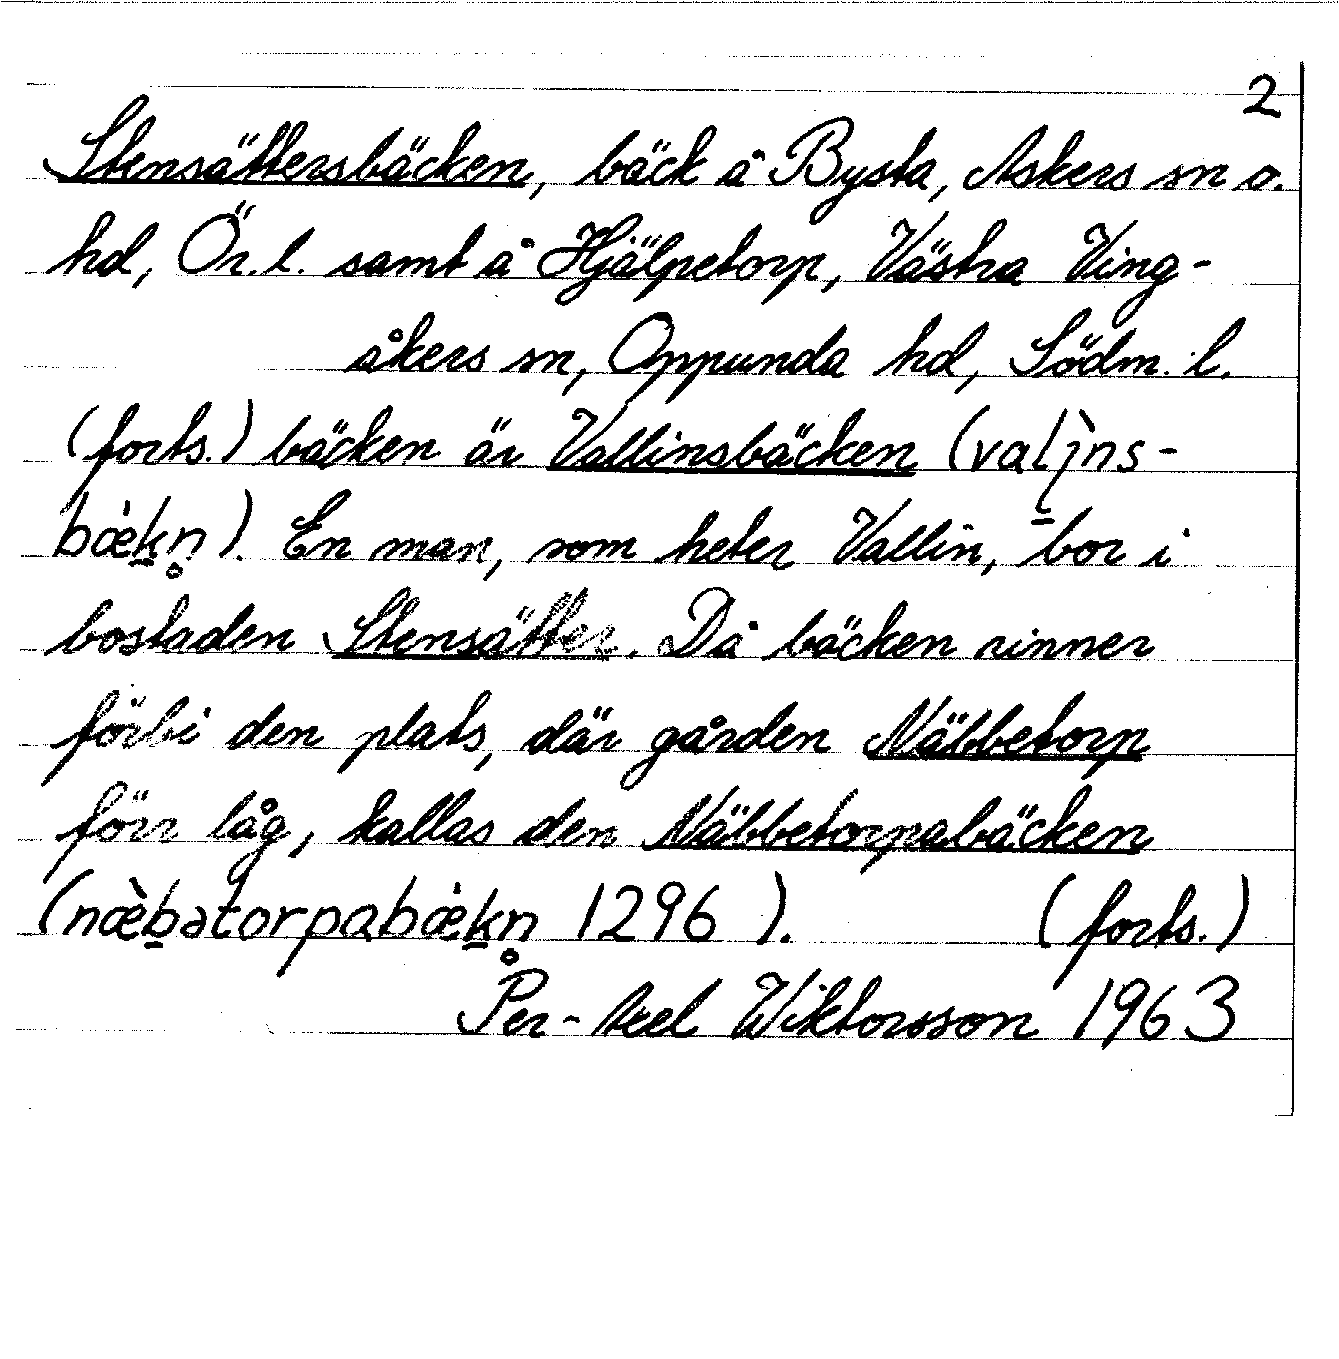 2
Stensättersbäcken, bäck å Bysta, Askers sn o.
hd, Ör. l. samt å Hjälpetorp, Västra Ving-
åkers sn, Oppunda hd, Södm. l.
(forts.) bäcken är Vallinsbäcken (valı̀ns-
bæ̀kn̥). En man, som heter Vallin, bor i
bostaden Stensätter. Då bäcken rinner
förbi den plats, där gården Näbbetorp
förr låg, kallas den Näbbetorpabäcken
(næ̀bətorpabæ̀kn̥ 1296 ). (forts.)
Per-Axel Wiktorsson 1963